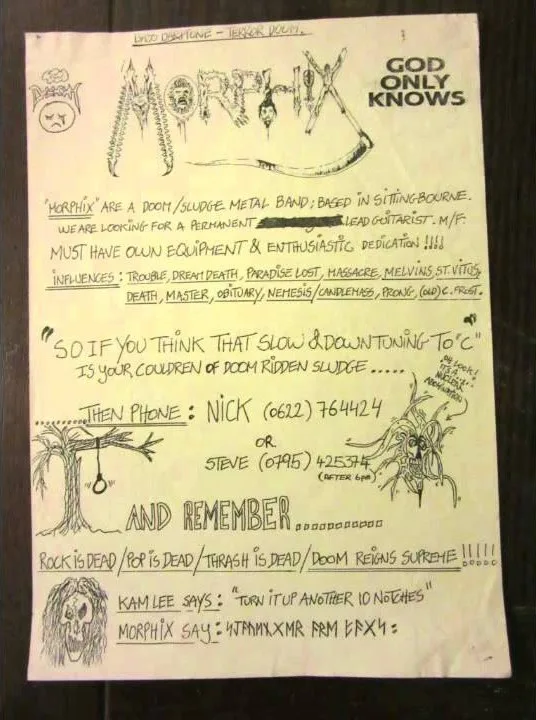 BASS BARITONE - TERROR DOOM.
DEATH
MORPHIX
GOD
ONLY
KNOWS
"MORPHIX" ARE A DOOM/SLUDGE METAL BAND; BASED IN SITTINGBOURNE.
WE ARE LOOKING FOR A PERMANENT LEAD GUITARIST. M/F.
MUST HAVE OWN EQUIPMENT & ENTHUSIASTIC DEDICATION!!!!
INFLUENCES: TROUBLE, DREAM DEATH, PARADISE LOST, MASSACRE, MELVINS, ST. VITUS,
DEATH, MASTER, OBITUARY, NEMESIS/CANDLEMASS, PRONG, (OLD) C. FROST.
"SO IF YOU THINK THAT SLOW & DOWNTUNING TO "C"
IS YOUR COULDREN OF DOOM RIDDEN SLUDGE.....
OH LOOK!
IT'S A
NUCLEAR
ABOMINATION
........THEN PHONE: NICK (0622) 764424
OR
STEVE (0795) 425374
(AFTER 6pm)
AND REMEMBER............
ROCK IS DEAD/POP IS DEAD/THRASH IS DEAD/DOOM REIGNS SUPREME!!!!!
KAM LEE SAYS: "TURN IT UP ANOTHER 10 NOTCHES"
MORPHIX SAY: